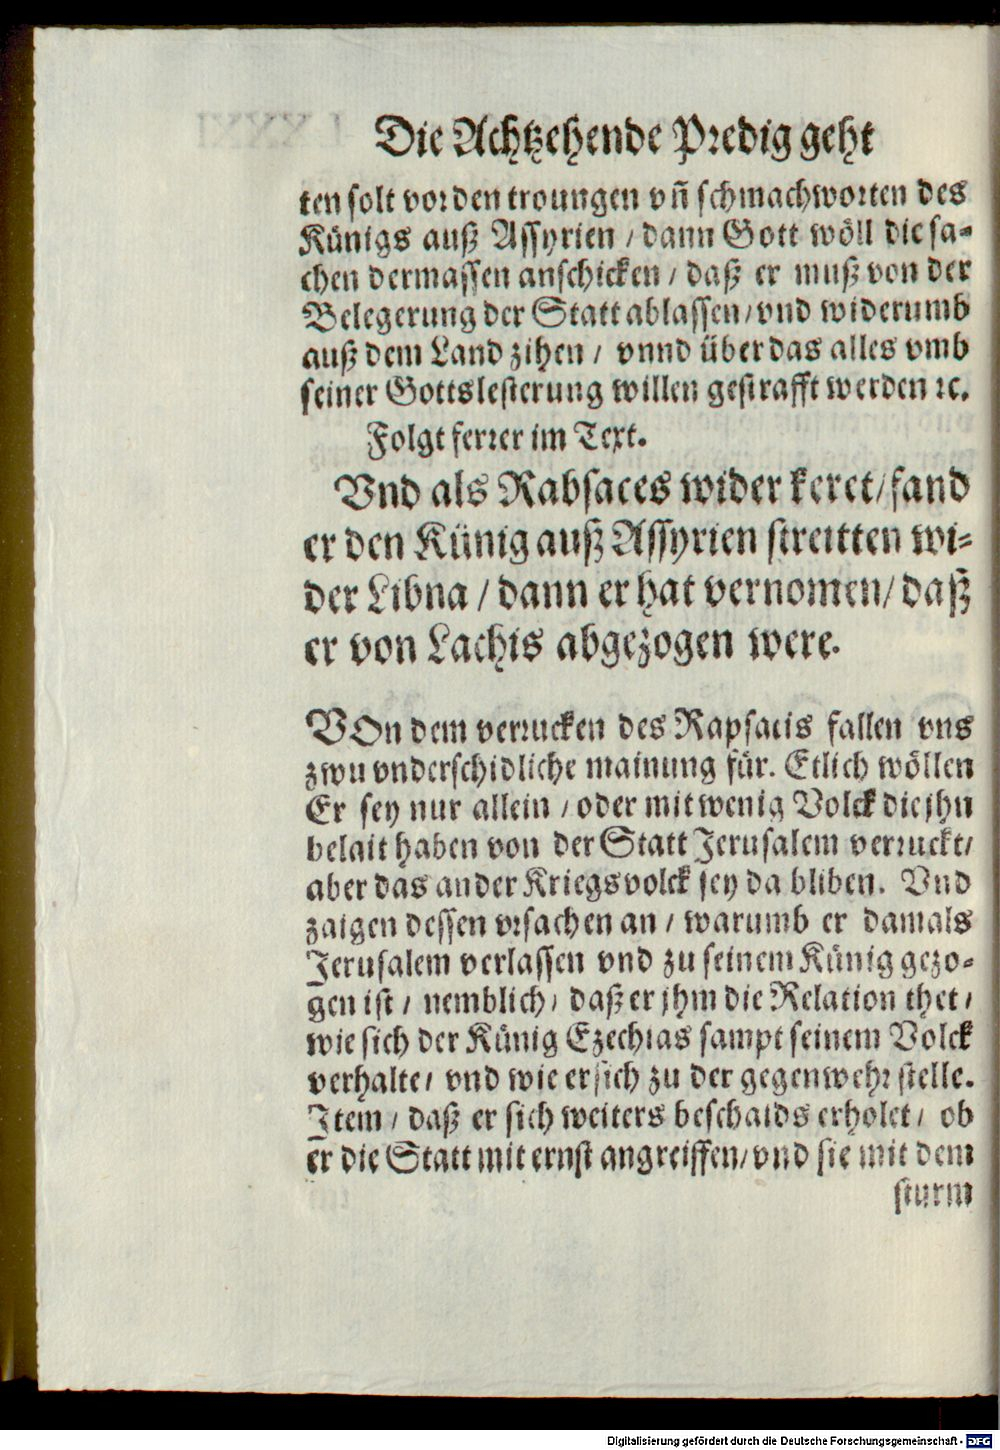 Die Achtzehende Predig geht
ten solt vor den troungen vn̄ schmachworten des
Künigs auß Assyrien / dann Gott wöll die sa-
chen dermassen anschicken / daß er muß von der
Belegerung der Statt ablassen / vnd widerumb
auß dem Land zihen / vnnd über das alles vmb
seiner Gottslesterung willen gestrafft werden ꝛc.
Folgt ferrer im Text.
Vnd als Rabsaces wider keret / fand
er den Künig auß Assyrien streitten wi-
der Libna / dann er hat vernomen / daß
er von Lachis abgezogen were.
VOn dem verrucken des Rapsacis fallen vns
zwu vnderschidliche mainung für. Etlich wöllen
Er sey nur allein / oder mit wenig Volck die jhn
belait haben von der Statt Jerusalem verruckt /
aber das ander Kriegsvolck sey da bliben. Vnd
zaigen dessen vrsachen an / warumb er damals
Jerusalem verlassen vnd zu seinem Künig gezo-
gen ist / nemblich / daß er jhm die Relation thet /
wie sich der Künig Ezechias sampt seinem Volck
verhalte / vnd wie er sich zu der gegenwehr stelle.
Item / daß er sich weiters beschaids erholet / ob
er die Statt mit ernst angreiffen / vnd sie mit dem
sturm
Digitalisierung gefördert durch die Deutsche Forschungsgemeinschaft - DFG